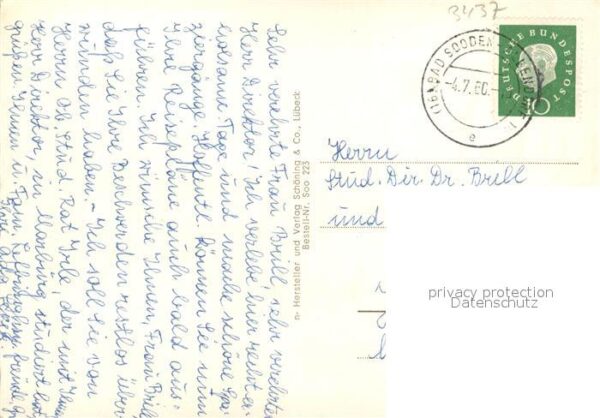 3437
(16) BAD SOODEN-
-4.7.60.-
e
DEUTSCHE BUNDESPOST
10
Herrn
Stud. Dir. Dr. Brill
und
privacy protection
Datenschutz
n- Hersteller und Verlag Schöning & Co., Lübeck
Bestell-Nr. Soo 223
Sehr verehrte Frau Brill, sehr verehrter
Herr Direktor! Ich verlebe hier recht er-
holsame Tage und mache schöne Spa-
ziergänge. Hoffentl. können Sie nun
Ihre Reisepläne auch bald aus-
führen. Ich wünsche Ihnen, Frau Brill
daß Sie Ihre Beschwerden restlos über-
wunden haben. - Ich soll Sie von
Herrn Ob. Stud. Rat Irle, der mit Ihnen
Herr Direktor in Marburg studiert hat
grüßen. Ihnen u. Fam.
Ihre